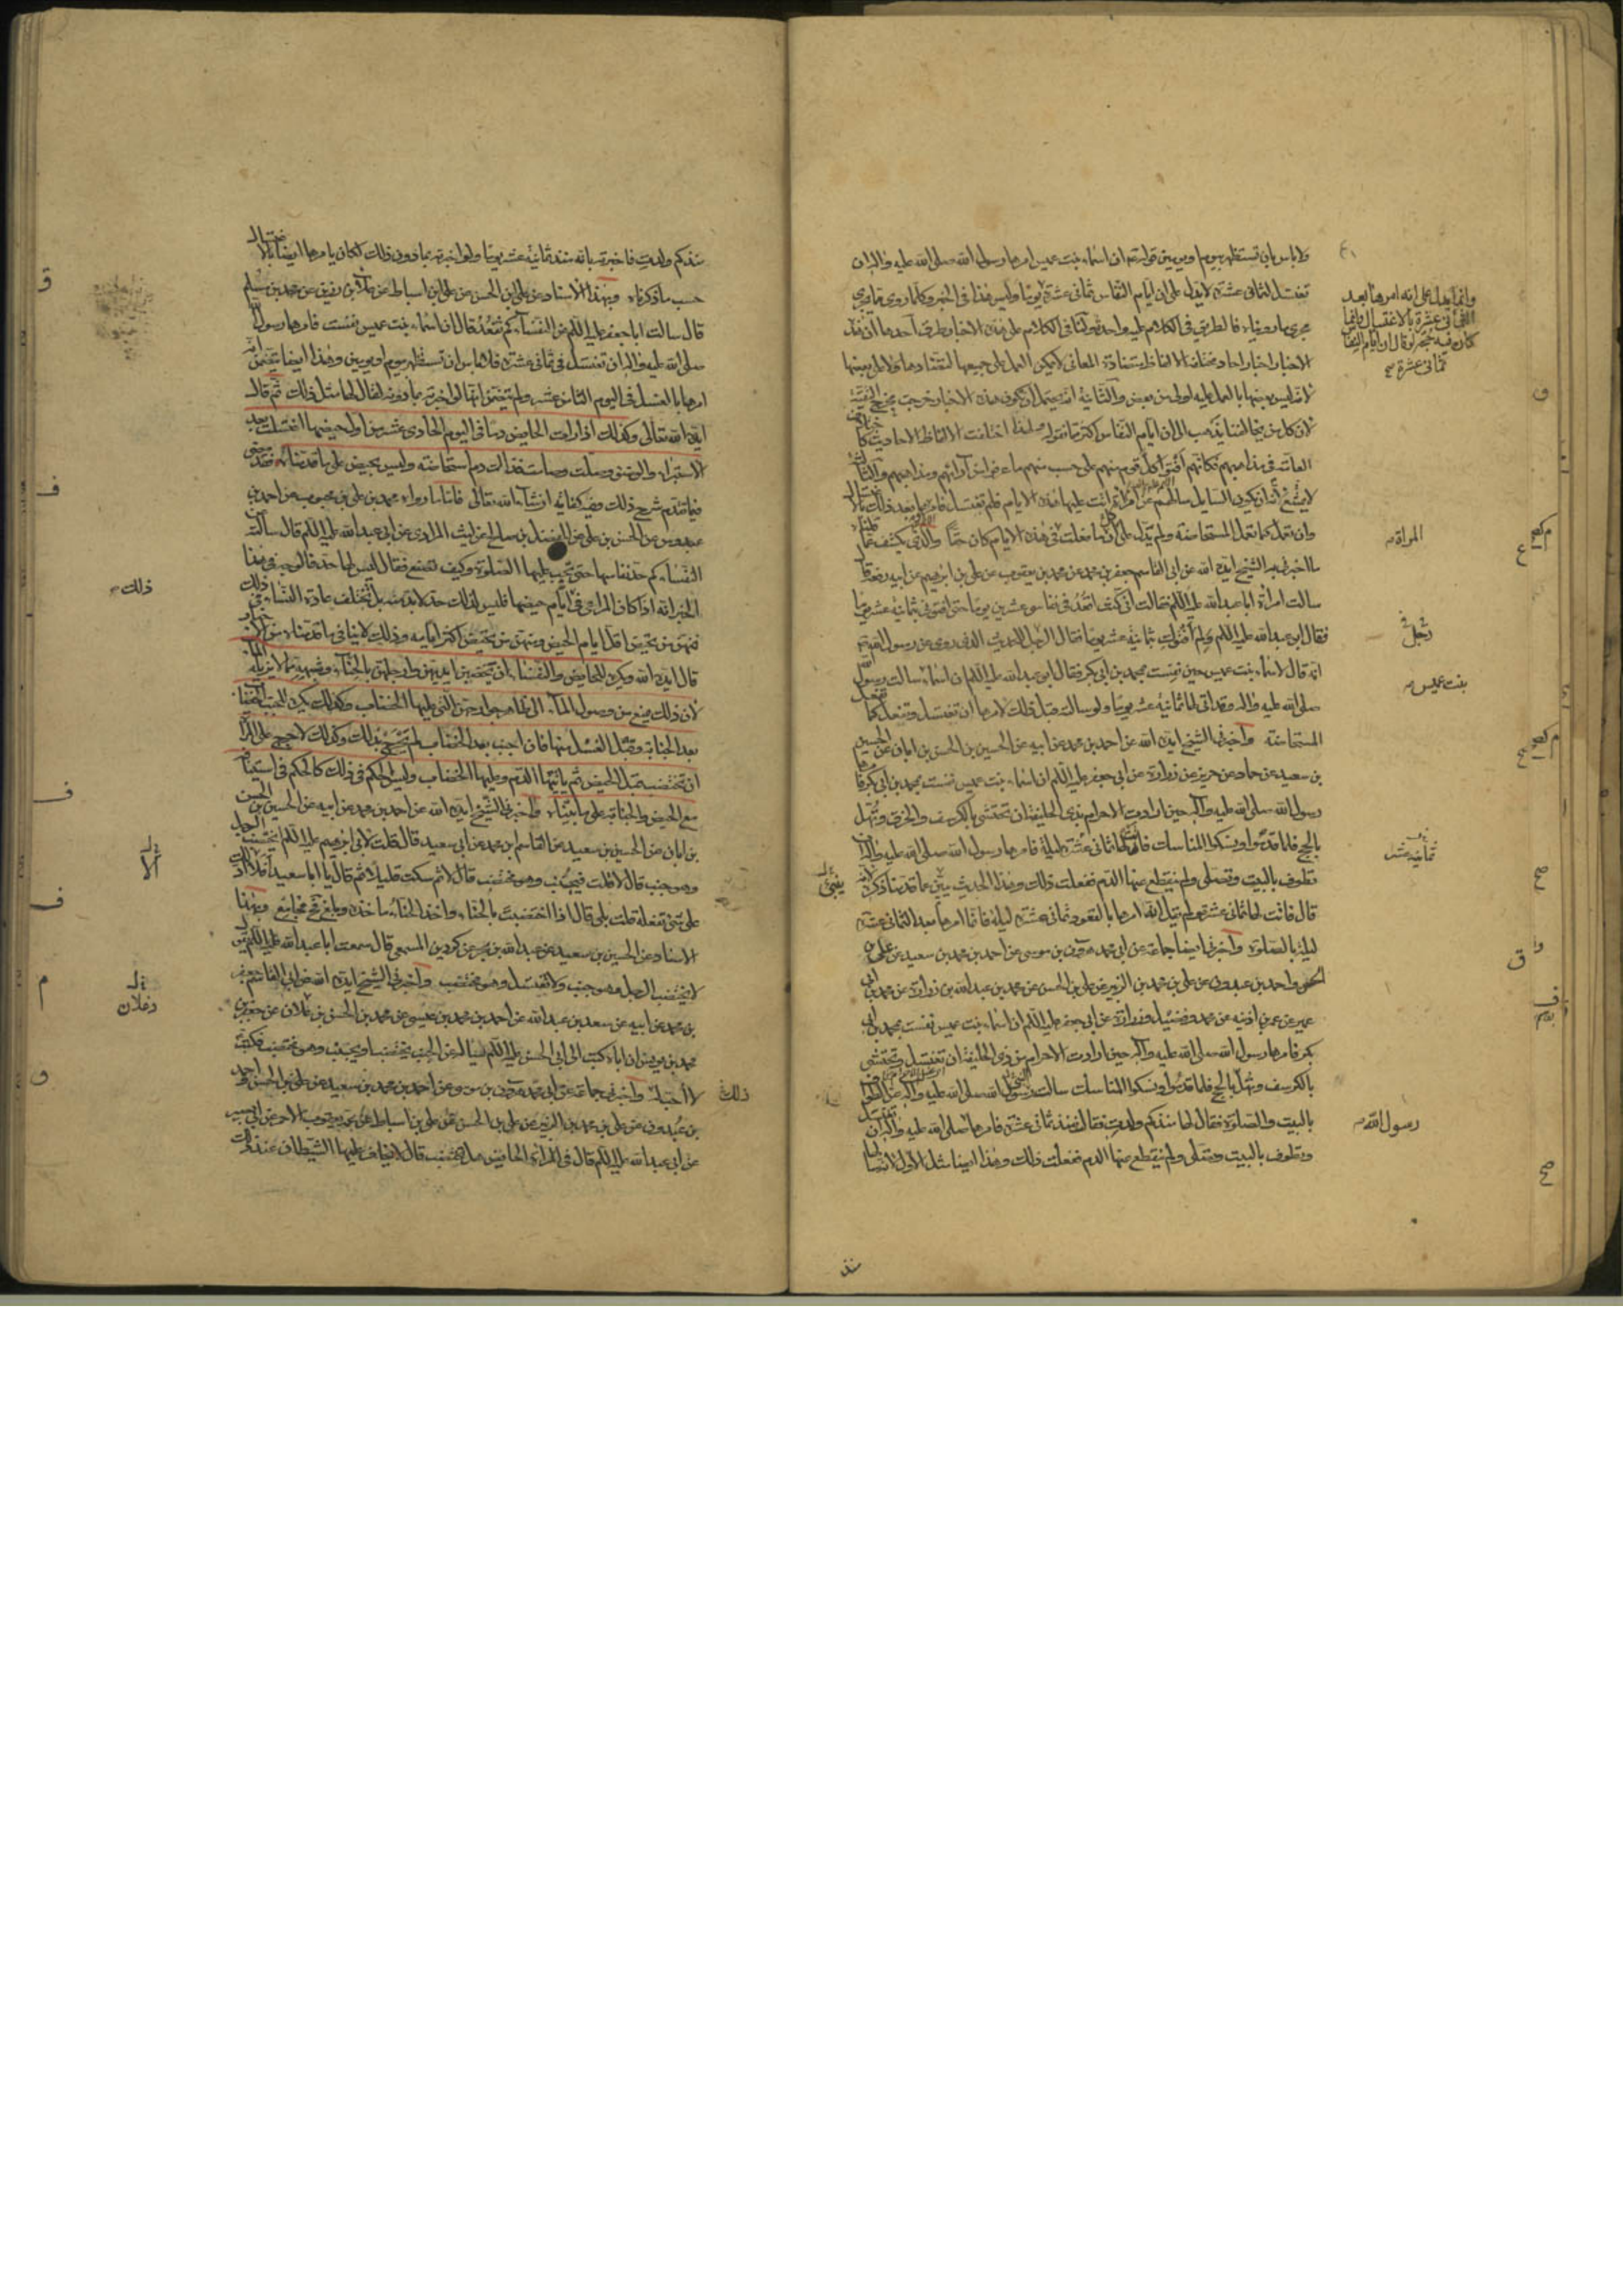 ولا باس بان تستظهر بيوم او يومين قوله ان اسماء بنت عميس امرها رسول الله صلى الله عليه واله ان
تغتسل لثمانى عشرة لا يدل على ان ايام النفاس ثمانى عشرة يوما وليس هذا فى الخبر وكلما روى مما يجرى
مجرى ما رويناه فالطريق فى الكلام عليه واحد ولنا فى الكلام على هذه الاخبار طرق احدها ان هذه
الاخبار اخبار احاد مختلفة الالفاظ متضادة المعانى لا يمكن العمل على جميعها لتضادها ولا على بعضها
لانه ليس بعضها بالعمل عليه اولى من بعض والثانية انه يحتمل ان يكون هذه الاخبار خرجت مخرج التقية
لان كل من يخالفنا يذهب الى ان ايام النفاس اكثر مما نقوله ولهذا اختلفت الالفاظ الاحاديث كاختلاف
العامة فى مذاهبهم فكانهم افتوا كل قوم منهم على حسب ما عرفوا من آرائهم ومذاهبهم والثالث انه
لا يمتنع ان يكون السايل سالهم عن امراة اتت عليها هذه الايام فلم تغتسل فامروها بعد ذلك بالاغتسال
وان تعمل كما تعمل المستحاضة ولم يدل على ان ما فعلت فى هذه الايام كان حقا والذى يكشف عما قلناه
ما اخبرنى به الشيخ ايده الله عن ابى القاسم جعفر بن محمد عن محمد بن يعقوب عن على بن ابرهيم عن ابيه رفعه قال
سالت امراة ابا عبد الله عليه السلم فقالت انى كنت اقعد فى نفاسى عشرين يوما حتى افتونى بثمانية عشر يوما
فقال ابو عبد الله عليه السلم ولم افتوك بثمانية عشر يوما فقال الرجل للحديث الذى روى عن رسول الله
انه قال لاسماء بنت عميس حين نفست بمحمد بن ابى بكر فقال ابو عبد الله عليه السلم ان اسماء سالت رسول الله
صلى الله عليه واله وقد اتى لها ثمانية عشر يوما ولو سالته قبل ذلك لامرها ان تغتسل وتفعل كما تفعل
المستحاضة واخبرنى الشيخ ايده الله عن احمد بن محمد عن ابيه عن الحسين بن الحسن بن ابان عن الحسين
بن سعيد عن حماد عن حريز عن زرارة عن ابى جعفر عليه السلم ان اسماء بنت عميس نفست بمحمد بن ابى بكر فامرها
رسول الله صلى الله عليه وآله حين ارادت الاحرام بذى الحليفة ان تحتشى بالكرسف والخرق وتهل
بالحج فلما قدموا ونسكوا المناسك فاتت لها ثمانى عشرة ليلة فامرها رسول الله صلى الله عليه واله ان
تطوف بالبيت وتصلى ولم ينقطع عنها الدم ففعلت ذلك وهذا الحديث يبين عما قدمنا ذكره لانه
قال فاتت لها ثمانى عشرة ولم يقل انه امرها بالقعود ثمانى عشرة ليلة فانما امرها بعد الثمانى عشرة
ليلة بالصلوة واخبرنى ايضا جماعة عن ابى محمد هرون بن موسى عن احمد بن محمد بن سعيد عن على بن
الحسن واحمد بن عبدون عن على بن محمد بن الزبير عن على بن الحسن عن محمد بن عبد الله بن زرارة عن محمد بن ابى
عمير عن عمر بن اذينه عن محمد وفضيل وزرارة عن ابى جعفر عليه السلم ان اسماء بنت عميس نفست بمحمد بن ابى
بكر فامرها رسول الله صلى الله عليه وآله حين ارادت الاحرام من ذى الحليفة ان تغتسل وتحتشى
بالكرسف وتهل بالحج فلما قدموا ونسكوا المناسك سالت رسول الله صلى الله عليه وآله عن الطواف
بالبيت والصلوة فقال لها منذ كم ولدت فقال منذ ثمانى عشرة فامرها صلى الله عليه واله ان تغتسل
وتطوف بالبيت وتصلى ولم ينقطع عنها الدم ففعلت ذلك وهذا ايضا مثل الاول لانه سالها
منذ
وانما يدل على انه امرها بعد
الثمانى عشرة بالاغتسال وانما
كان فيه حجة لو قال ان ايام النفاس
ثمانى عشرة صح
المراة
رجل
بنت عميس
ثمانية عشر
رسول الله
منذ كم ولدت فاخبرته بانه منذ ثمانية عشر يوما ولو اخبرته بما دون ذلك لكان يامرها ايضا بالاغتسال
حسب ما ذكرناه وبهذا الاسناد عن على بن الحسن عن على بن اسباط عن علا بن رزين عن محمد بن مسلم
قال سالت ابا جعفر عليه السلم عن النفساء كم تقعد قال ان اسماء بنت عميس نفست فامرها رسول الله
صلى الله عليه واله ان تغتسل فى ثمانى عشرة فلا باس ان تستظهر بيوم او يومين وهذا ايضا يتضمن انه
امرها بالغسل فى اليوم الثامن عشر ولم يتضمن انها لو اخبرته بما دونه لقال لها مثل ذلك ثم قال
ايده الله تعالى وكذلك اذا رات الحايض دما فى اليوم الحادى عشر من اول حيضها اغتسلت بعد
الاستبراء والوضوء وصلت وصامت فذلك دم استحاضة وليس بحيض على ما قدمناه فقد مضى
فيما تقدم شرح ذلك وفيه كفاية ان شاء الله تعالى فاما ما رواه محمد بن على بن محبوب عن احمد بن
عبدوس عن الحسن بن على عن المفضل بن صالح عن ليث المرادى عن ابى عبد الله عليه السلم قال سالته عن
النفساء كم حد نفاسها حتى تجب عليها الصلوة وكيف تصنع فقال ليس لها حد فالوجه فى هذا
الخبر انه اذا كان المراعى فى ايام حيضها فليس لذلك حد لا بد منه بل تختلف عادة النساء فى ذلك
فمنهن من تحيض اقل ايام الحيض ومنهن من تحيض اكثر ايامه وذلك لا ينافى ما قدمناه
قال ايده الله ويكره للحايض والنفساء ان تخضبن ايديهن وارجلهن بالحناء وشبهه مما لا يزيله الماء
لان ذلك يمنع من وصول الماء الى ظاهر جوارحهن التى عليها الخضاب وكذلك يكره للجنب الخضاب
بعد الجنابة وقبل الغسل منها فان اجنب بعد الخضاب لم يتحرج بذلك وكذلك لا حرج على المراة
ان تختضب قبل الحيض ثم ياتيها الدم وعليها الخضاب وليس الحكم فى ذلك كالحكم فى استينافه
مع الحيض والجنابة على ما بيناه واخبرنى الشيخ ايده الله عن احمد بن محمد عن ابيه عن الحسين بن الحسن
بن ابان عن الحسين بن سعيد عن القاسم بن محمد عن ابى سعيد قال قلت لابى ابرهيم عليه السلم ايختضب الرجل
وهو جنب قال لا قلت فيجنب وهو مختضب قال لا ثم سكت قليلا ثم قال يا ابا سعيد افلا ادلك
على شىء تفعله قلت بلى قال اذا اختضبت بالحناء واخذ الحناء ماخذه وبلغ فح فجامع وبهذا
الاسناد عن الحسين بن سعيد عن عبد الله بن بحر عن كردين المسمعى قال سمعت ابا عبد الله عليه السلم يقول
لا يختضب الرجل وهو جنب ولا يغتسل وهو مختضب واخبرنى الشيخ ايده الله عن ابى القاسم جعفر
بن محمد عن ابيه عن سعد بن عبد الله عن احمد بن محمد بن عيسى عن محمد بن الحسن بن علان عن جعفر بن
محمد بن يونس ان اباه كتب الى ابى الحسن عليه السلم يساله عن الجنب يختضب او يجنب وهو مختضب فكتب
لا احب له واخبرنى جماعة عن ابى محمد هرون بن موسى عن احمد بن محمد بن سعيد عن على بن الحسن واحمد
بن عبدون عن على بن محمد بن الزبير عن على بن الحسن عن على بن اسباط عن عمه يعقوب الاحمر عن ابى بصير
عن ابى عبد الله عليه السلم قال فى المراة الحايض هل تختضب قال لا يخاف عليها الشيطان عند ذلك
ذلك
ذلك